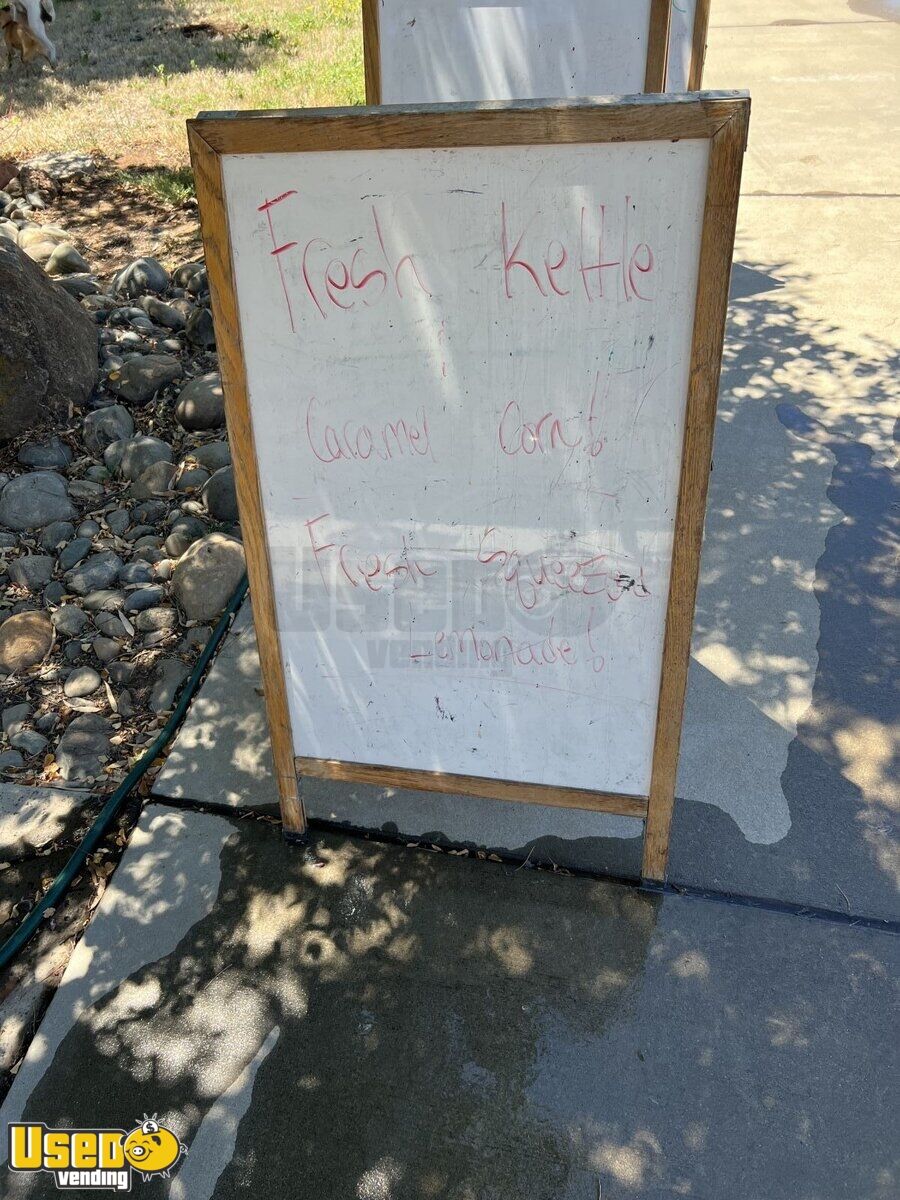 Fresh Kettle
Caramel Corn!
Fresh Squeezed
Lemonade!
USED
vending
USED
vending